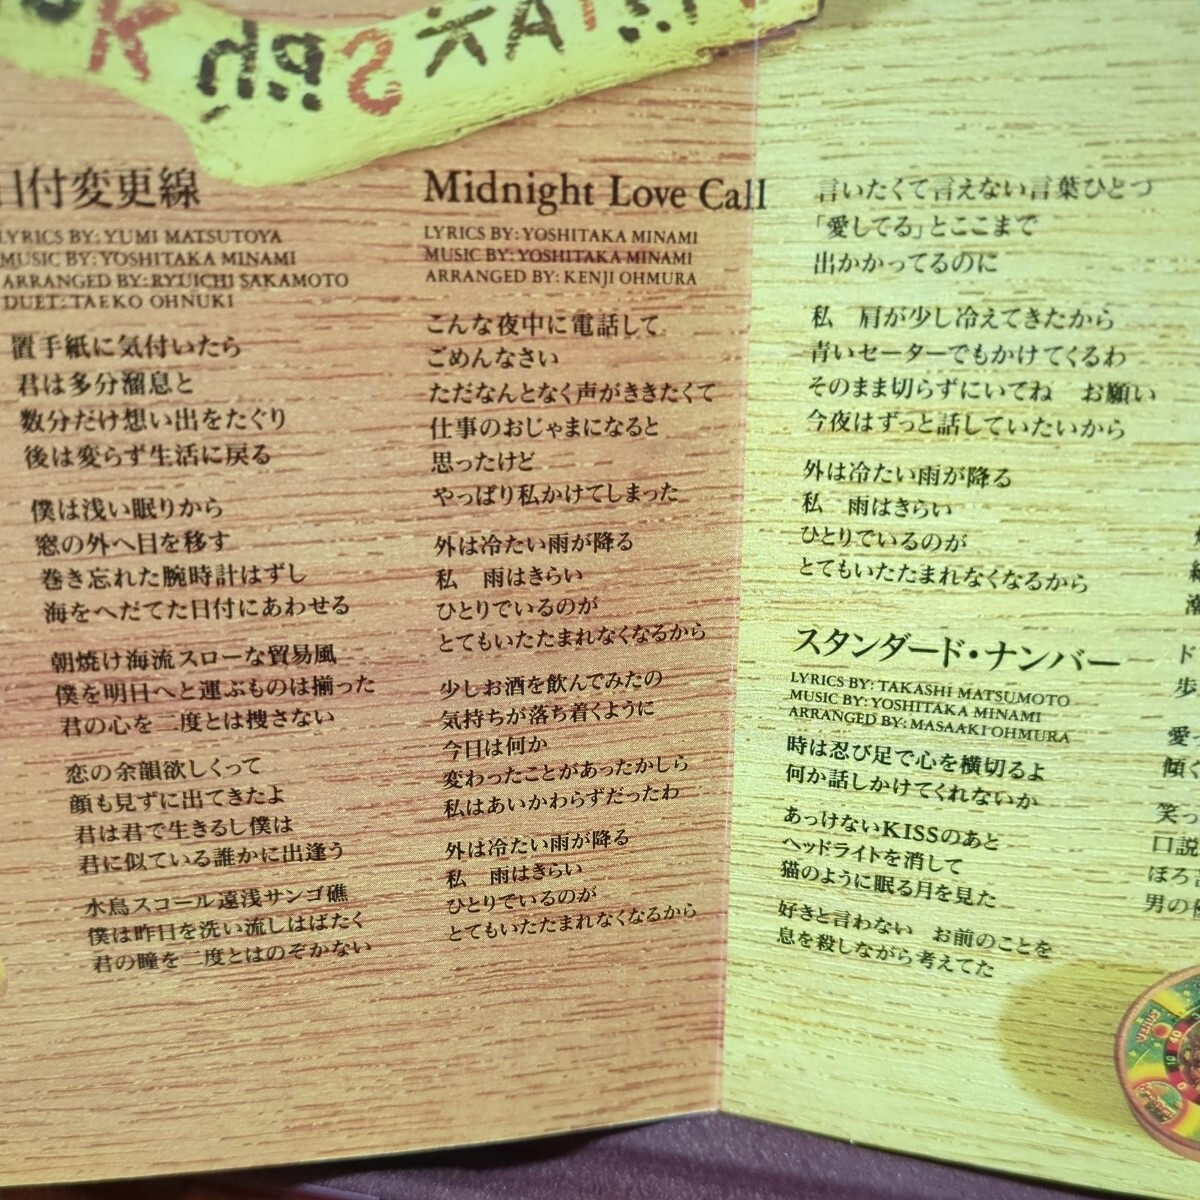 日付変更線
LYRICS BY: YUMI MATSUTOYA
MUSIC BY: YOSHITAKA MINAMI
ARRANGED BY: RYUICHI SAKAMOTO
DUET: TAEKO OHNUKI
置手紙に気付いたら
君は多分溜息と
数分だけ想い出をたぐり
後は変らず生活に戻る
僕は浅い眠りから
窓の外へ目を移す
巻き忘れた腕時計はずし
海をへだてた日付にあわせる
朝焼け海流スローな貿易風
僕を明日へと運ぶものは揃った
君の心を二度とは捜さない
恋の余韻欲しくって
顔も見ずに出てきたよ
君は君で生きるし僕は
君に似ている誰かに出逢う
水鳥スコール遠浅サンゴ礁
僕は昨日を洗い流しはばたく
君の瞳を二度とはのぞかない
Midnight Love Call
LYRICS BY: YOSHITAKA MINAMI
MUSIC BY: YOSHITAKA MINAMI
ARRANGED BY: KENJI OHMURA
こんな夜中に電話して
ごめんなさい
ただなんとなく声がききたくて
仕事のおじゃまになると
思ったけど
やっぱり私かけてしまった
外は冷たい雨が降る
私　雨はきらい
ひとりでいるのが
とてもいたたまれなくなるから
少しお酒を飲んでみたの
気持ちが落ち着くように
今日は何か
変わったことがあったかしら
私はあいかわらずだったわ
外は冷たい雨が降る
私　雨はきらい
ひとりでいるのが
とてもいたたまれなくなるから
言いたくて言えない言葉ひとつ
「愛してる」とここまで
出かかってるのに
私　肩が少し冷えてきたから
青いセーターでもかけてくるわ
そのまま切らずにいてね　お願い
今夜はずっと話していたいから
外は冷たい雨が降る
私　雨はきらい
ひとりでいるのが
とてもいたたまれなくなるから
スタンダード・ナンバー
LYRICS BY: TAKASHI MATSUMOTO
MUSIC BY: YOSHITAKA MINAMI
ARRANGED BY: MASAAKI OHMURA
時は忍び足で心を横切るよ
何か話しかけてくれないか
あっけないKISSのあと
ヘッドライトを消して
猫のように眠る月を見た
好きと言わない　お前のことを
息を殺しながら考えてた
ド
歩
愛っ
傾く
笑っ
口説
ほろ
男の